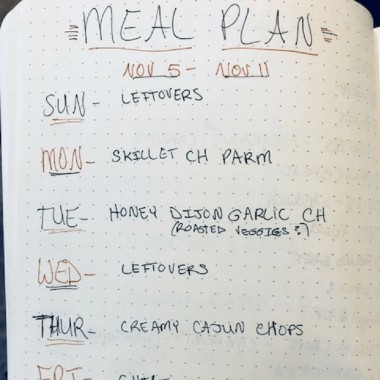 MEAL PLAN
NOV 5 - NOV 11
SUN - LEFTOVERS
MON - SKILLET CH PARM
TUE - HONEY DIJON GARLIC CH
(ROASTED VEGGIES?)
WED - LEFTOVERS
THUR - CREAMY CAJUN CHOPS
FRI -